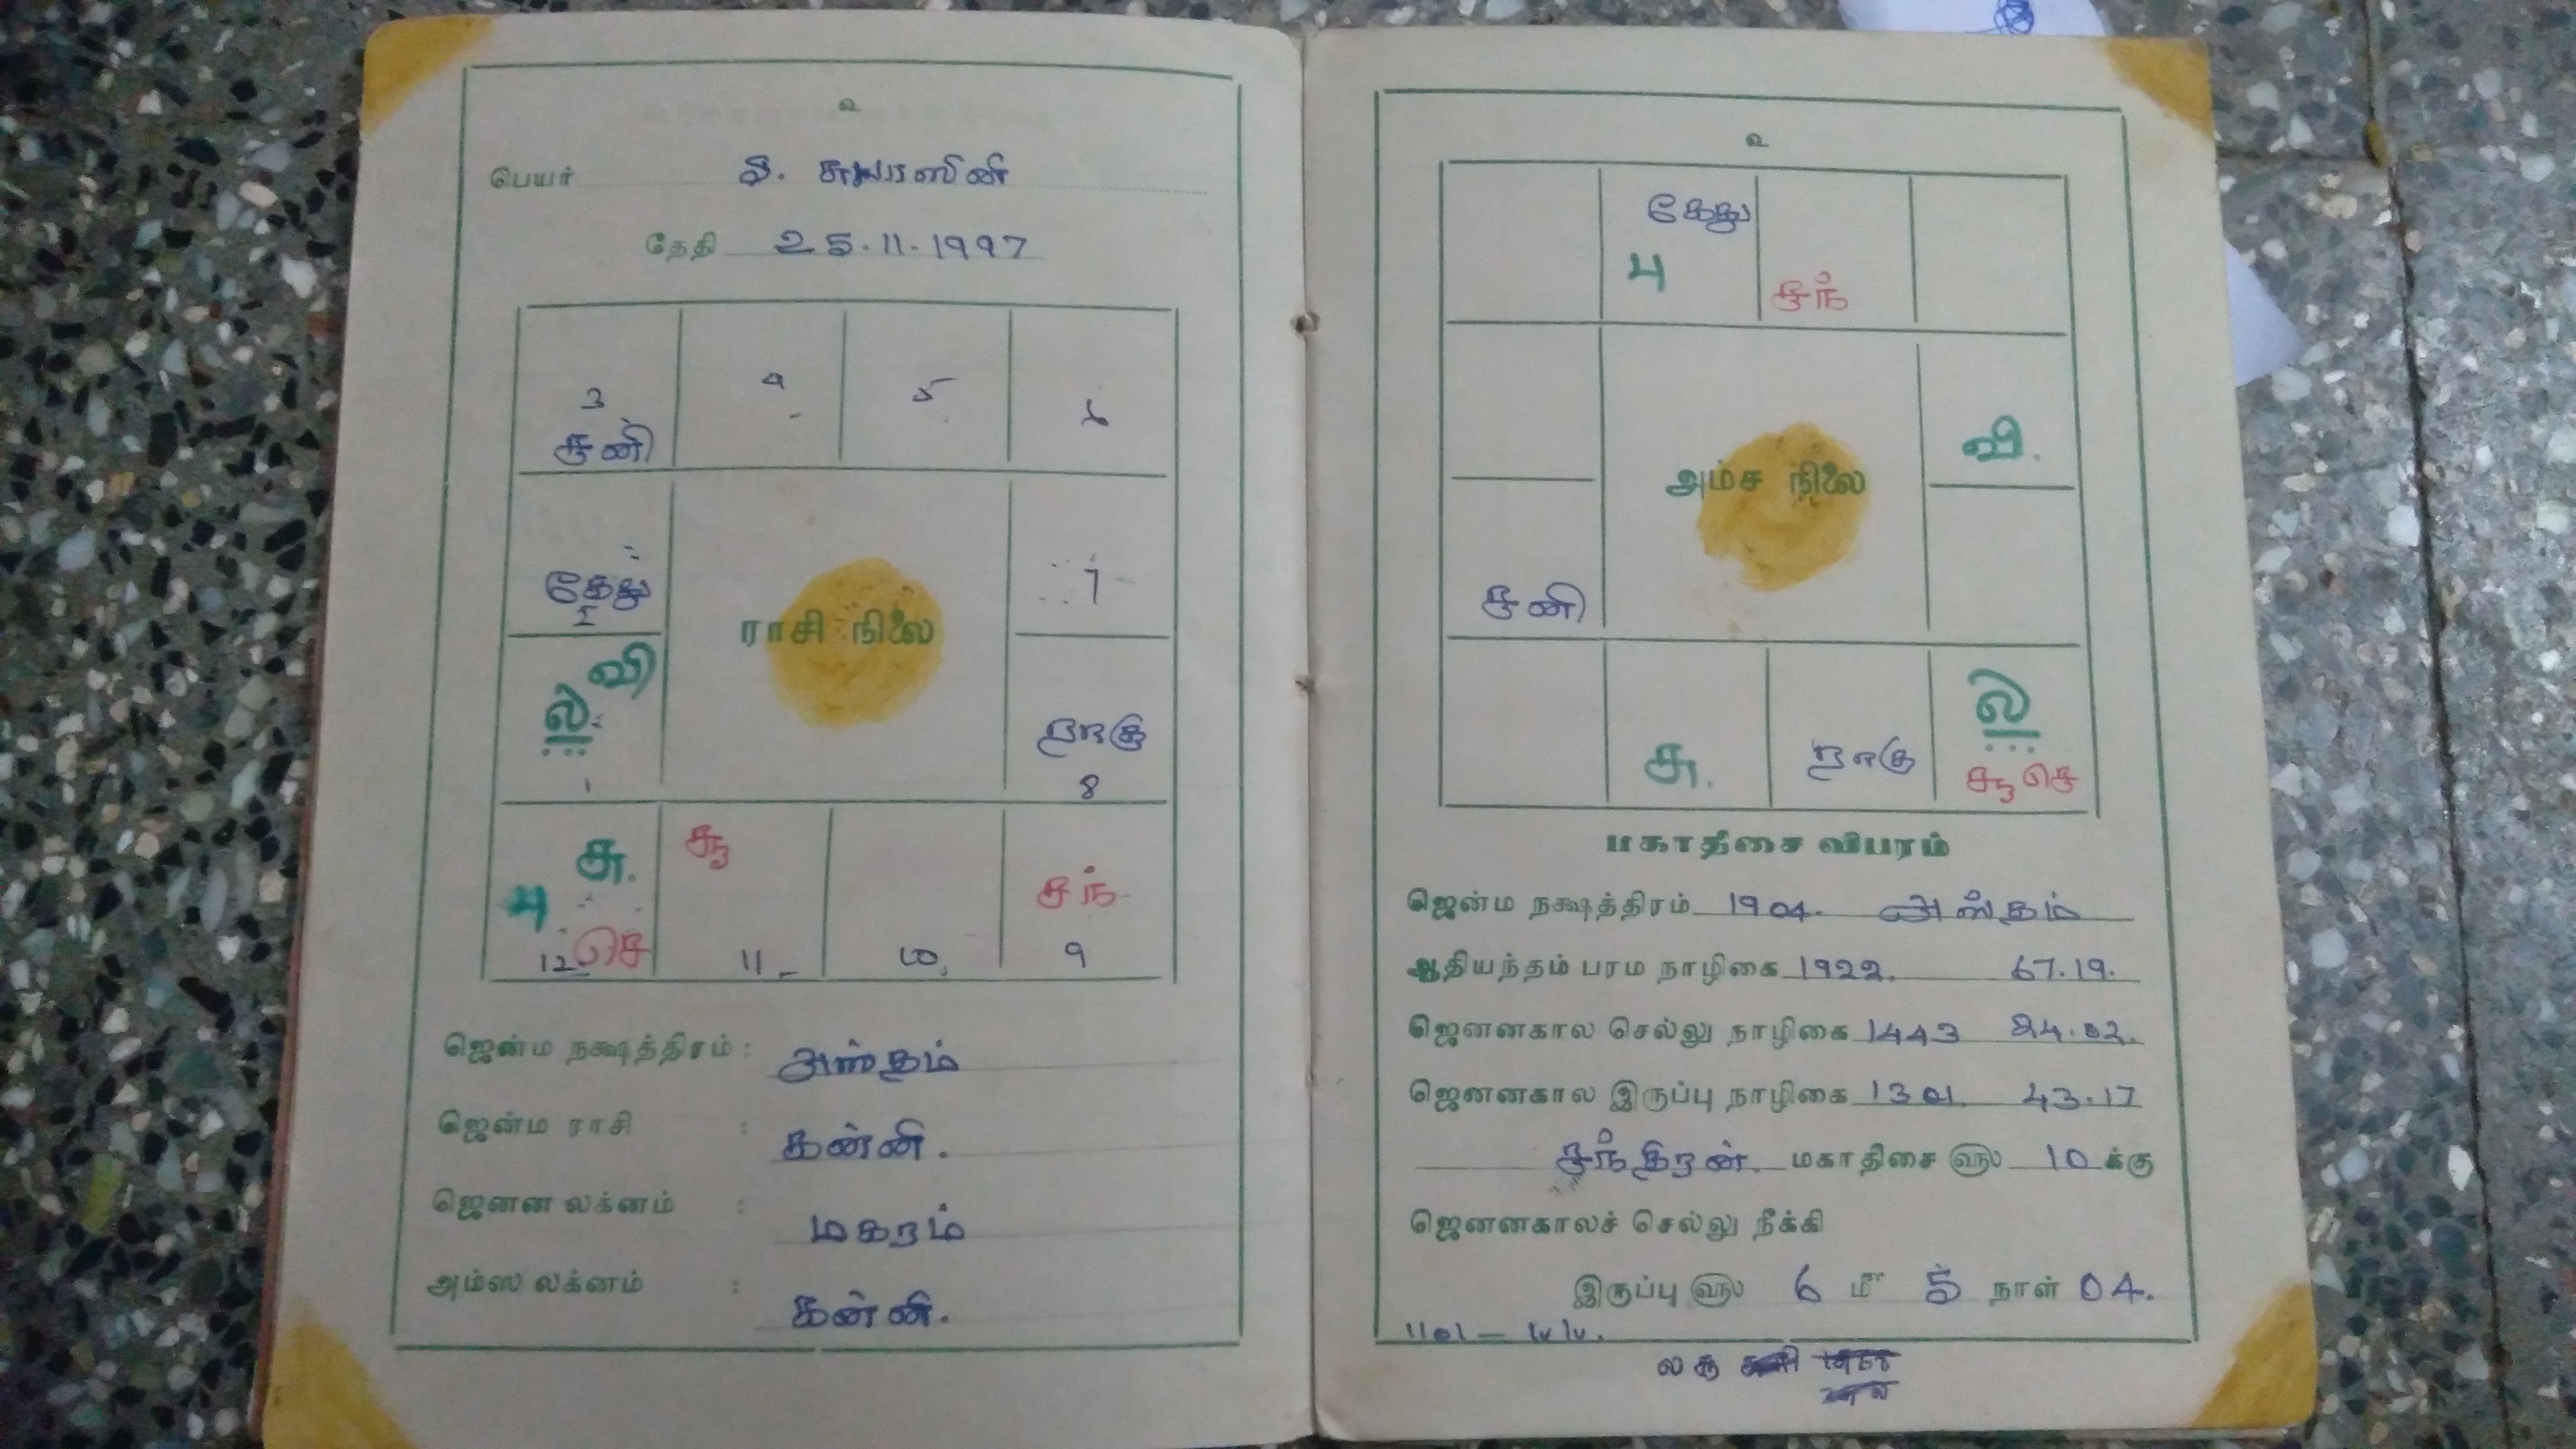 உ
பெயர்
தேதி 25.11.1997
3 4 5 6
சனி
கேது 7
2
ராசி நிலை
வி
ல ராகு
1 8
சு. சூ
பு சந்
செ
12 11 10 9
ஜென்ம நக்ஷத்திரம் : அஸ்தம்
ஜென்ம ராசி : கன்னி.
ஜெனன லக்னம் : மகரம்
அம்ஸ லக்னம் : கன்னி.
உ
கேது
பு சந்
வி.
அம்ச நிலை
சனி
ல
சு. ராகு
சூ செ
மகாதிசை விபரம்
ஜென்ம நக்ஷத்திரம் 1904. அஸ்தம்
ஆதியந்தம் பரம நாழிகை 1922. 67.19.
ஜெனனகால செல்லு நாழிகை 1443 24.02.
ஜெனனகால இருப்பு நாழிகை 43.17
சந்திரன். மகாதிசை ௵ 10 க்கு
ஜெனனகாலச் செல்லு நீக்கி
இருப்பு ௵ 6 மீ 5 நாள் 04.